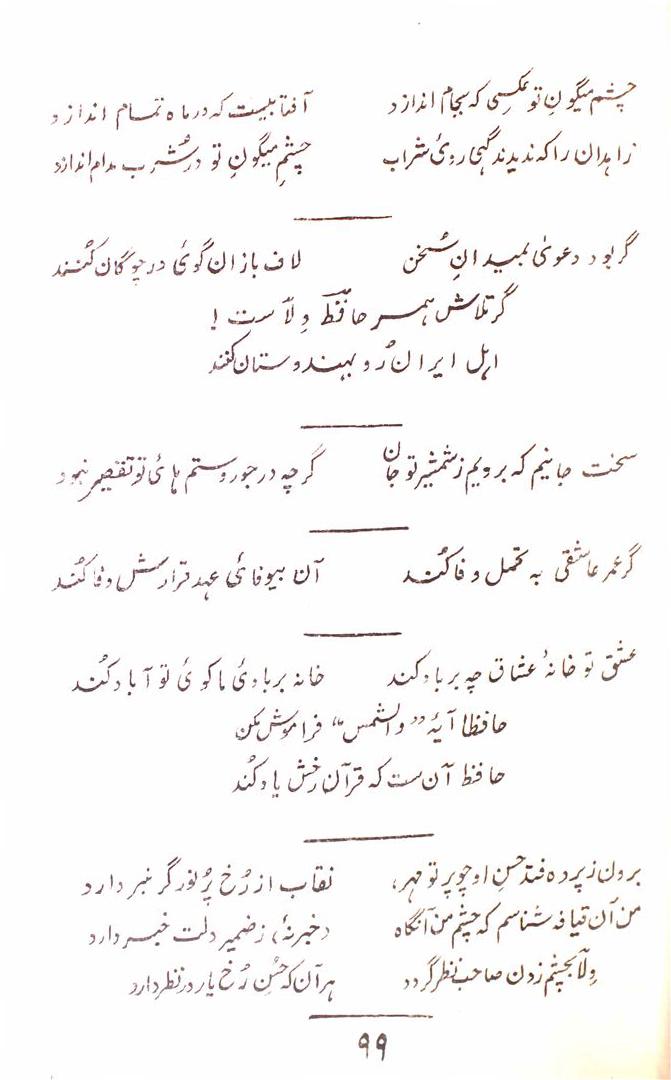 چشمِ میگونِ تو عکسی که بجام اندازد آفتابیست که در ماه تمام اندازد
زاهدان را که ندیدند گهی روئ شراب چشمِ میگونِ تو در شُرب مدام اندازد
گر بود دعویٰ بمیدانِ سُخن لاف بازان گوئ در چوگان کُنند
گر تلاش ہمسر حافظ وِلّاست !
اہل ایران رُو بہندوستان کنند
سخت جانیم که برویم ز شمشیر تو جان گرچه در جور و ستم ہائ تو تقصیر نبود
گر عمر عاشقی به تحمل وفا کُند آن بیوفائ عہد قرارش وفا کُند
عشق تو خانهٔ عشاق چه برباد کند خانه بربادیٔ ما کوئ تو آباد کُند
حافظا آیهٔ “والشمس” فراموش مکن
حافظ آن ست که قرآن رُخش یاد کُند
برون ز پرده فتد حسنِ او چو پرتو مہر، نقاب از رُخ پُر نور گر نبر دارد
من آن قیافه شناسم که چشم من آنگاه (خبرنهٔ) ز ضمیر دلت خبر دارد
وِلّا بچشم زدن صاحب نظر گردد ہر آن که حُسنِ رُخِ یار در نظر دارد
۹۹